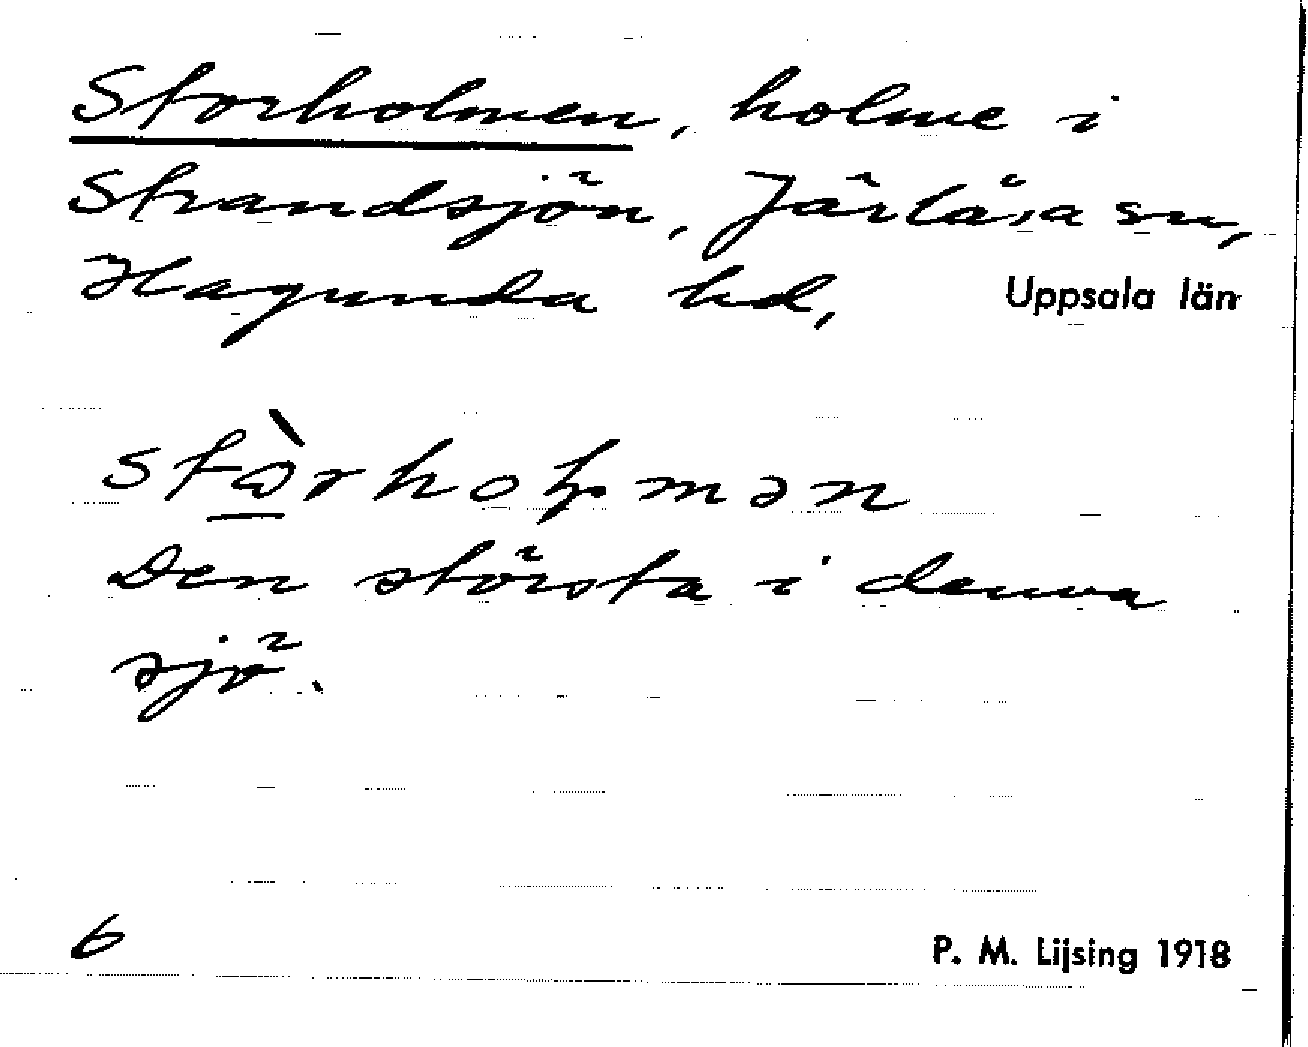 Storholmen, holme i
Strandsjön, Järlåsa sn,
Hagunda hd, Uppsala län
Den största i denna
sjö.
6
P. M. Lijsing 1918